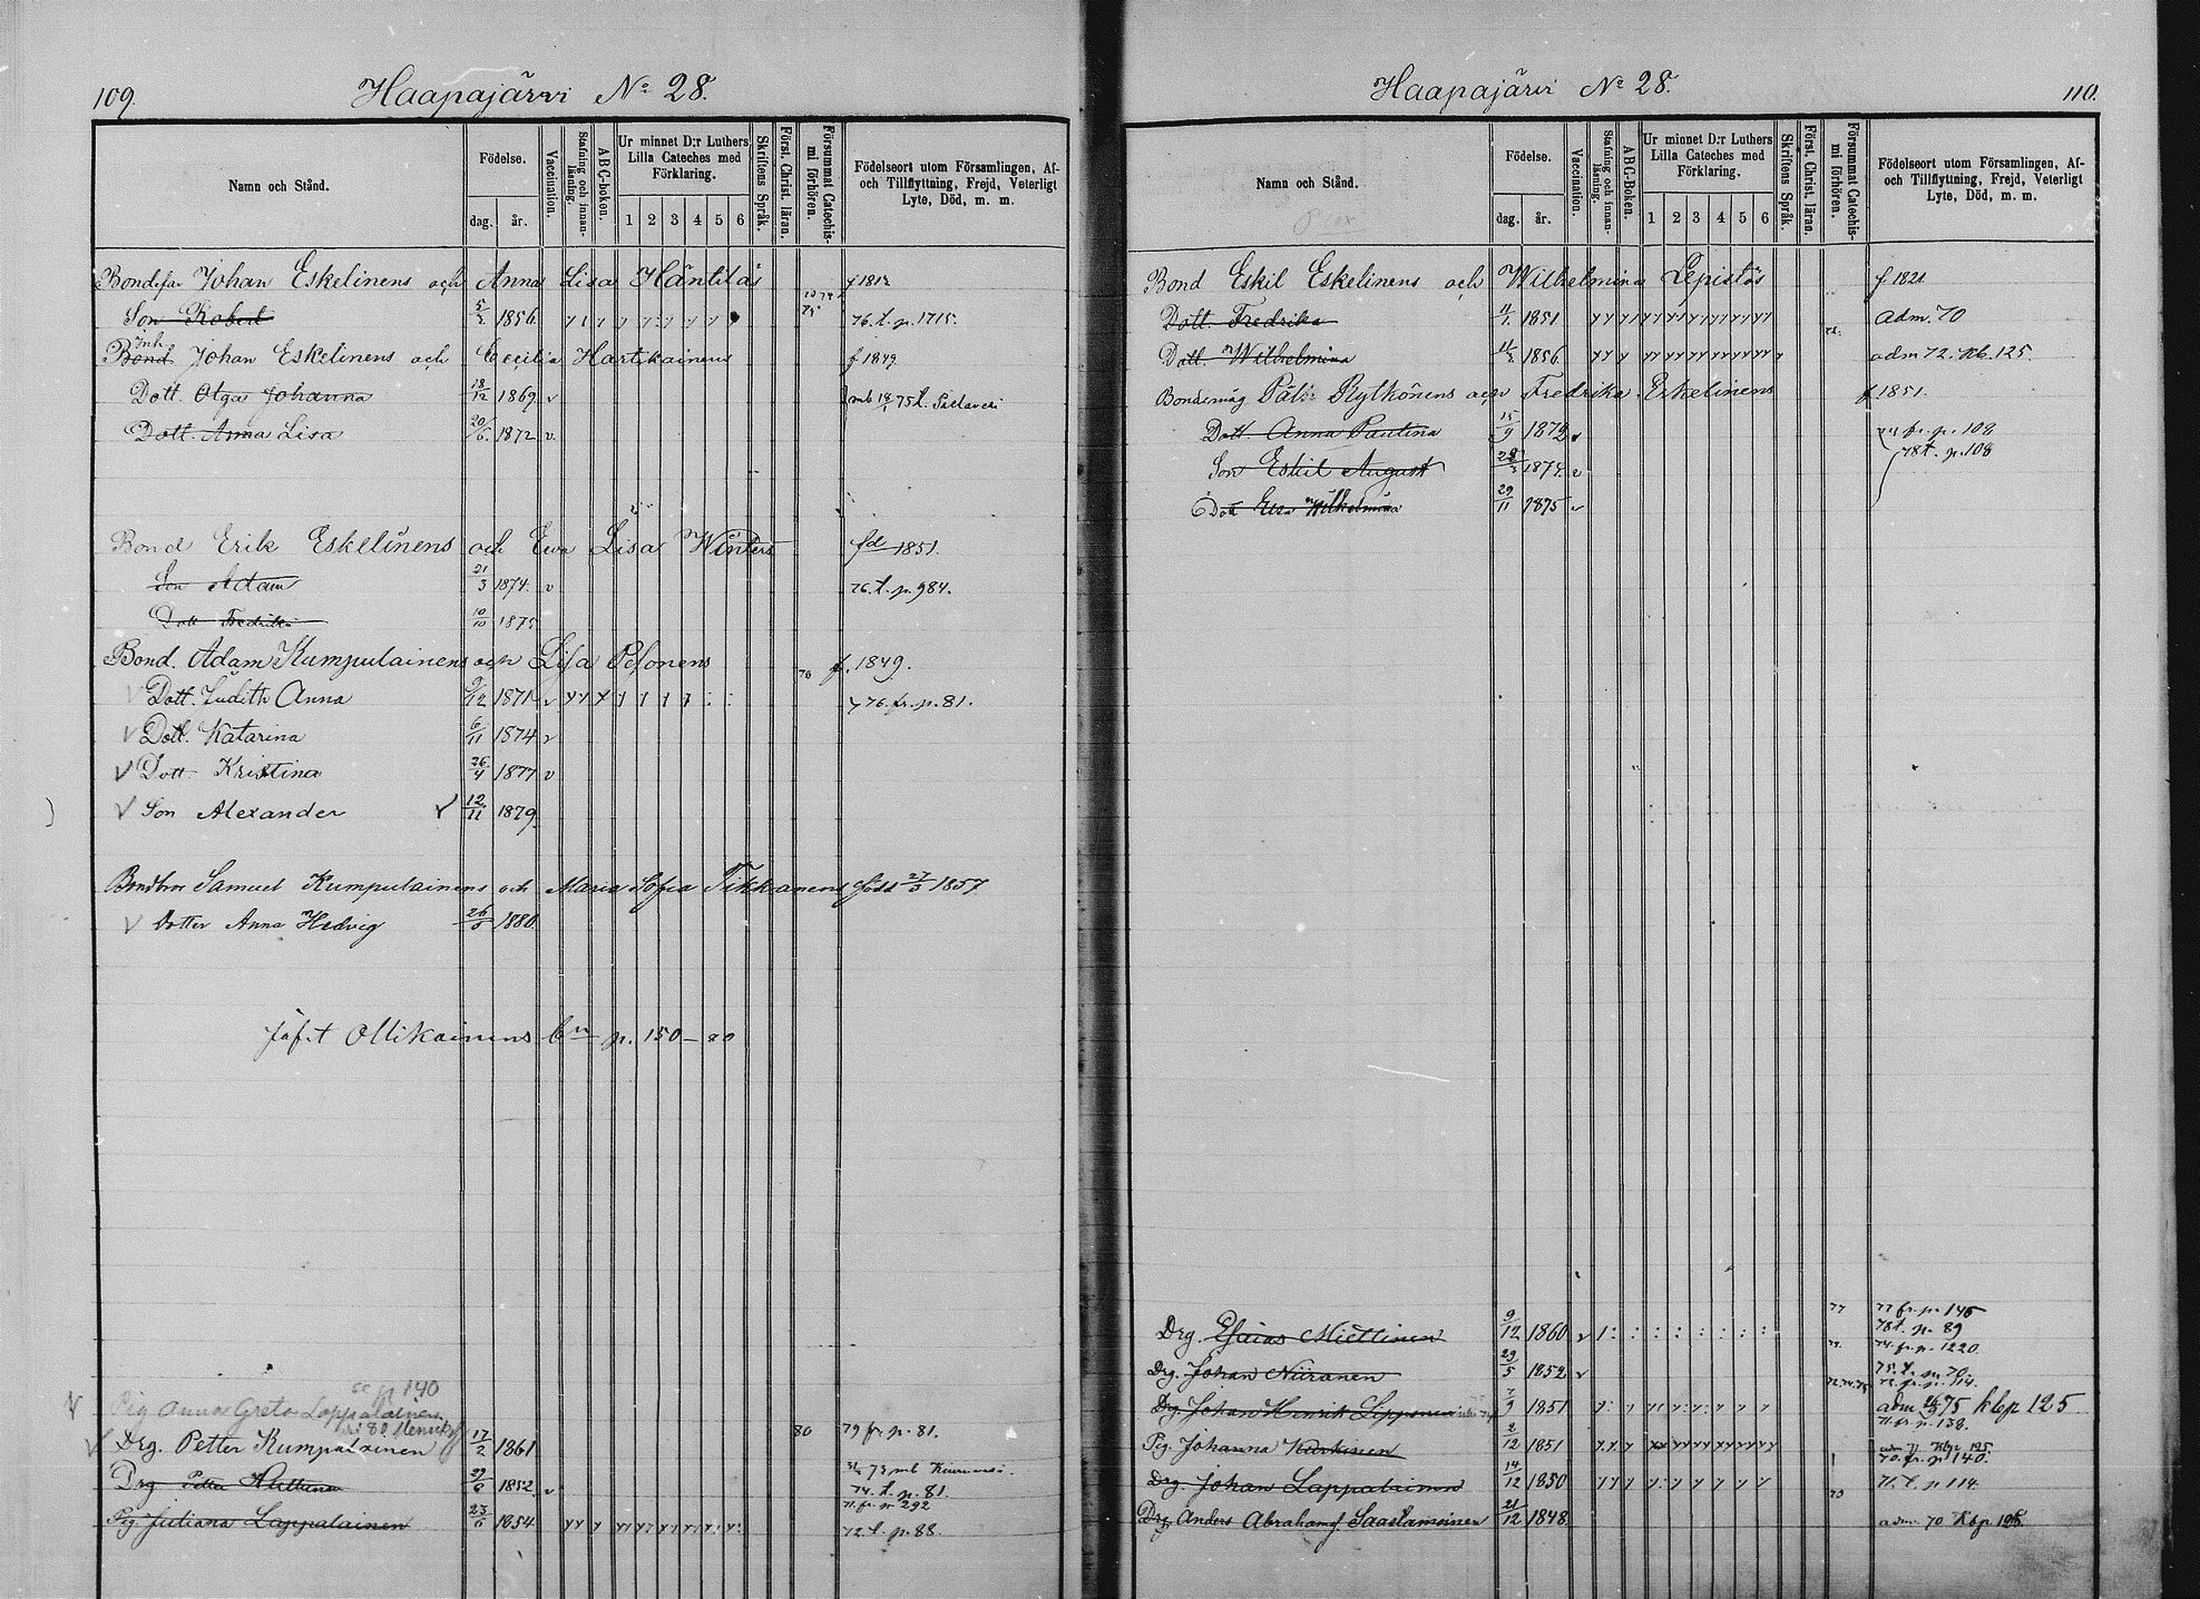 109.
Haapajärvi No 28.
Namn och Stånd.
Födelse.
dag.
år.
Vaccination.
Stafning och innanläsning.
ABC-boken.
Ur minnet D:r Luthers Lilla Cateches med Förklaring.
1 2 3 4 5 6
Skriftens Språk.
Först. Christ. läran.
Försummat Catechismi förhören.
Födelseort utom Församlingen, Af- och Tillflyttning, Frejd, Veterligt Lyte, Död, m. m.
Bondefar Johan Eskelinens och Anna Lisa Häntilas f 1812
Son Robert 5/2 1856 76.t.p.1715.
Inh.
Bond Johan Eskelinens och Cecilia Hartikainens f 1849
Dott. Olga Johanna 18/12 1869 v mb 18/1 75 t.
Dott. Anna Lisa 20/6 1872 v.
Bond Erik Eskelinens och Ewa Lisa Winters fd 1851.
Son Adam 21/3 1874. v 76.t.p.984.
Dott Fredrika 10/10 1875
Bond. Adam Kumpulainens och Lisa Pesonens 78 f. 1849.
Dott. Judith Anna 9/12 1871 v 76.fr.p.81.
Dott. Katarina 6/11 1874 v
Dott. Kristina 26/4 1877 v
Son Alexander 12/11 1879
Bondbror Samuel Kumpulainens och Maria Sofia Tikkanens född 27/5 1857
Dotter Anna Hedvig 1880.
Ollikainens bn p. 150
se p 190
Pig Anna Greta Lappalainen
Drg. Petter Kumpulainen 17/2 1861 80 79 fr.p.81.
Drg Petter 29/6 1852 v 74.t.p.81.
71.fr.p 292
Pig. Juliana Lappalainen 23/6 1854 72.t.p.88.
Haapajärvi No 28.
110.
Namn och Stånd.
Födelse.
dag.
år.
Vaccination.
Stafning och innanläsning.
ABC-Boken.
Ur minnet D:r Luthers Lilla Cateches med Förklaring.
1 2 3 4 5 6
Skriftens Språk.
Först. Christ. läran.
Försummat Catechismi förhören.
Födelseort utom Församlingen, Af- och Tillflyttning, Frejd, Veterligt Lyte, Död, m. m.
Bond Eskil Eskelinens och Wilhelmina Lepistös f 1821
Dott. Fredrika 11/1 1851 adm. 70
Dott. Wilhelmina 1856 adm 72. Kb. 125.
Bondemåg Påhl Rytkönens och Fredrika Eskelinens f 1851.
Dott Anna Paulina 15/9 1872 v fr.p.108
Son Eskil August 1874. v 78 t.p.108
Dott Eva Wilhelmina 29/11 1875 v
77 77 fr.p. 145
Drg. Esaias Miettinen 9/12 1860 v 78t.p.89
74.fr.p.1220.
Drg. Johan Niiranen 29/5 1852 v
72.74.75
Drg. Johan Henrik Lipponen 7/9 1851 adm 75 kbp 125
71.fr.p.138.
Pig. Johanna Kurkinen 2/12 1851 adm 71 Kbp 125.
70.fr.p 140.
Drg. Johan Lappalainen 14/12 1850 71.t.p 114
Drg Anders Abrahamsf. Saastamoinen 21/12 1848. adm. 70 Kbp 125.